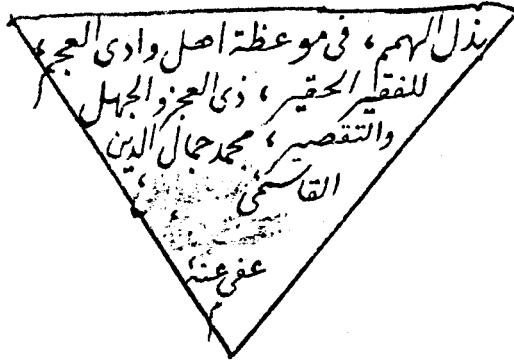 بذل الهمم ، فى موعظة اهل وادى العجم ،
للفقير الحقير ، ذى العجز والجهل
والتقصير ، محمد جمال الدين
القاسمى ،
عفى عنه
م